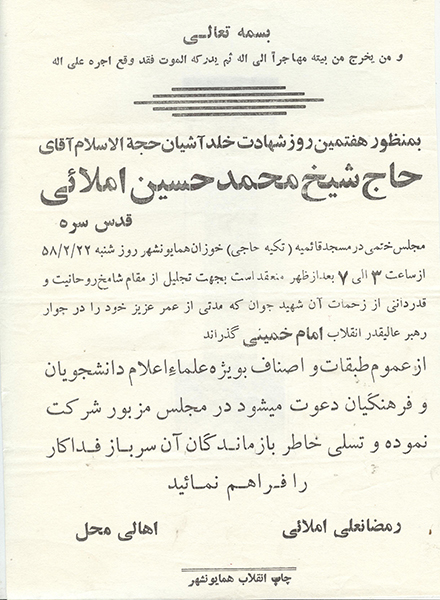 بسمه تعالی
و من یخرج من بیته مهاجراً الی اله ثم یدرکه الموت فقد وقع اجره علی اله
بمنظور هفتمین روز شهادت خلد آشیان حجة الاسلام آقای
حاج شیخ محمد حسین املائی
قدس سره
مجلس ختمی در مسجد قائمیه (تکیه حاجی) خوزان همایونشهر روز شنبه ۵۸/۲/۲۲
از ساعت ۳ الی ۷ بعد از ظهر منعقد است بجهت تجلیل از مقام شامخ روحانیت و
قدردانی از زحمات آن شهید جوان که مدتی از عمر عزیز خود را در جوار
رهبر عالیقدر انقلاب امام خمینی گذراند
از عموم طبقات و اصناف بویژه علماء اعلام دانشجویان
و فرهنگیان دعوت میشود در مجلس مزبور شرکت
نموده و تسلی خاطر بازماندگان آن سرباز فداکار
را فراهم نمائید
رمضانعلی املائی
اهالی محل
چاپ انقلاب همایونشهر